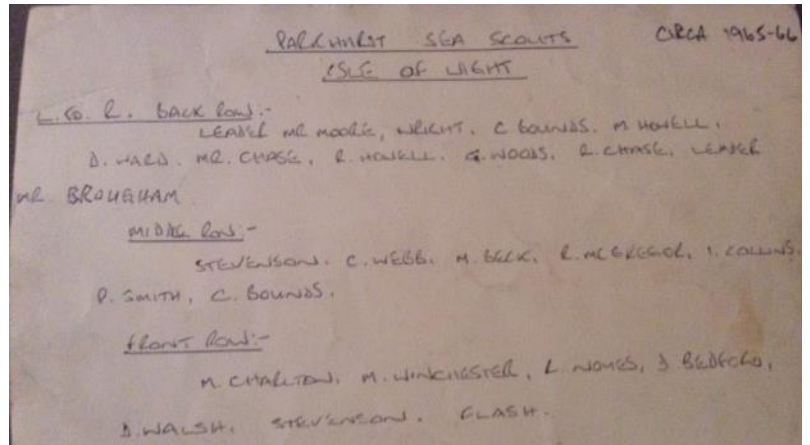 PARKHURST SEA SCOUTS CIRCA 1965-66
ISLE OF WIGHT
L. TO. R. BACK ROW:-
LEADER MR MOORE, WRIGHT. C BOUNDS. M. HOWELL.
D. WARD. MR. CHASE, R. HOWELL. G. WOODS. R. CHASE, LEADER
MR. BROUGHAM
MIDDLE ROW:-
STEVENSON. C. WEBB. M. BECK, R. MCGREGOR, I. COLLINS.
P. SMITH, C. BOUNDS.
FRONT ROW:-
M. CHARLTON, M. WINCHESTER, L. NOYES, J. BEDFORD,
D. WALSH. STEVENSON. FLASH.